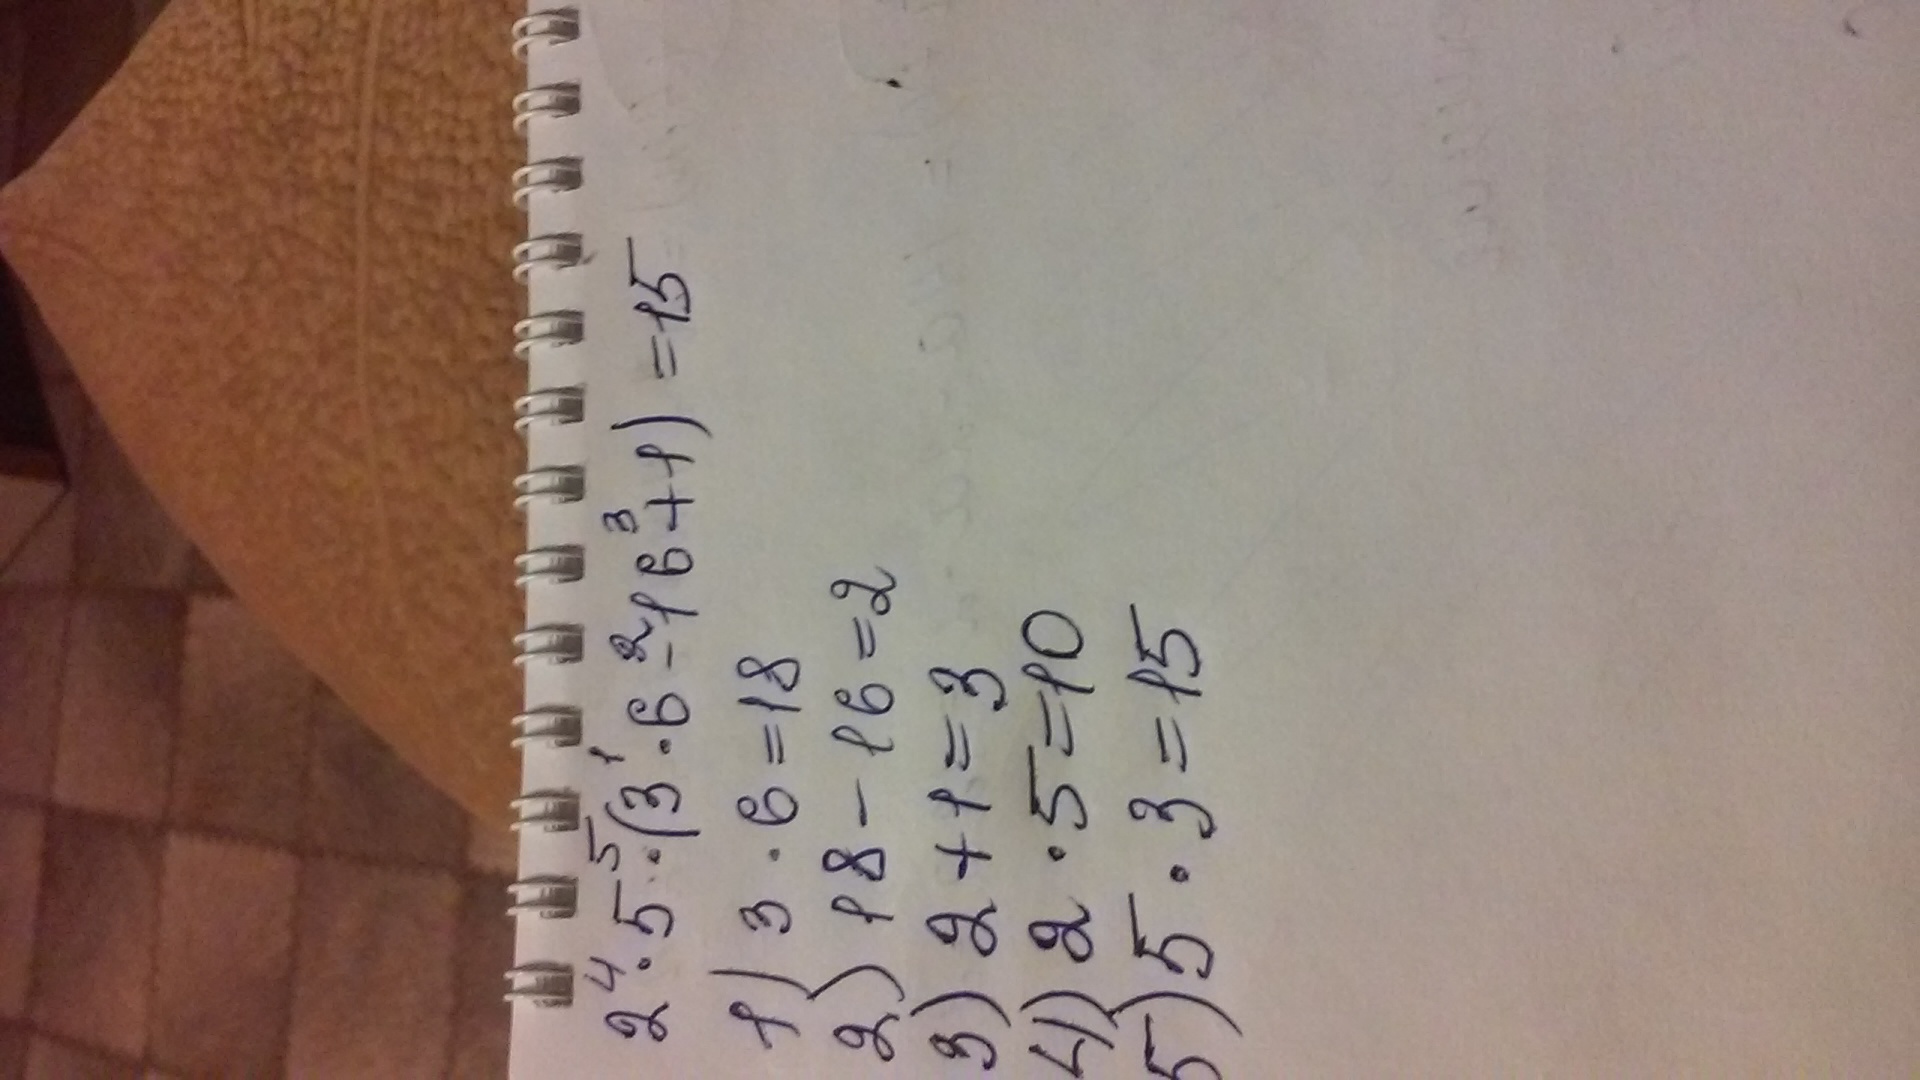 2⁴·5⁵·(3¹·6²-16³+1)=15
1) 3·6=18
2) 18-16=2
3) 2+1=3
4) 2·5=10
5) 5·3=15